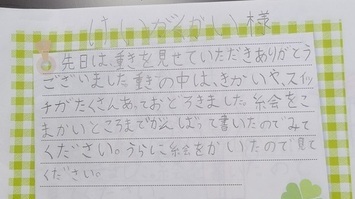 けいがくかい様
先日は、重きを見せていただきありがとう
ございました重きの中は、きかいや、スイッ
チがたくさんあっておどろきました絵をこ
まかいところまでがんばって書いたのでみて
ください。うらに絵をかいたので見て
ください。